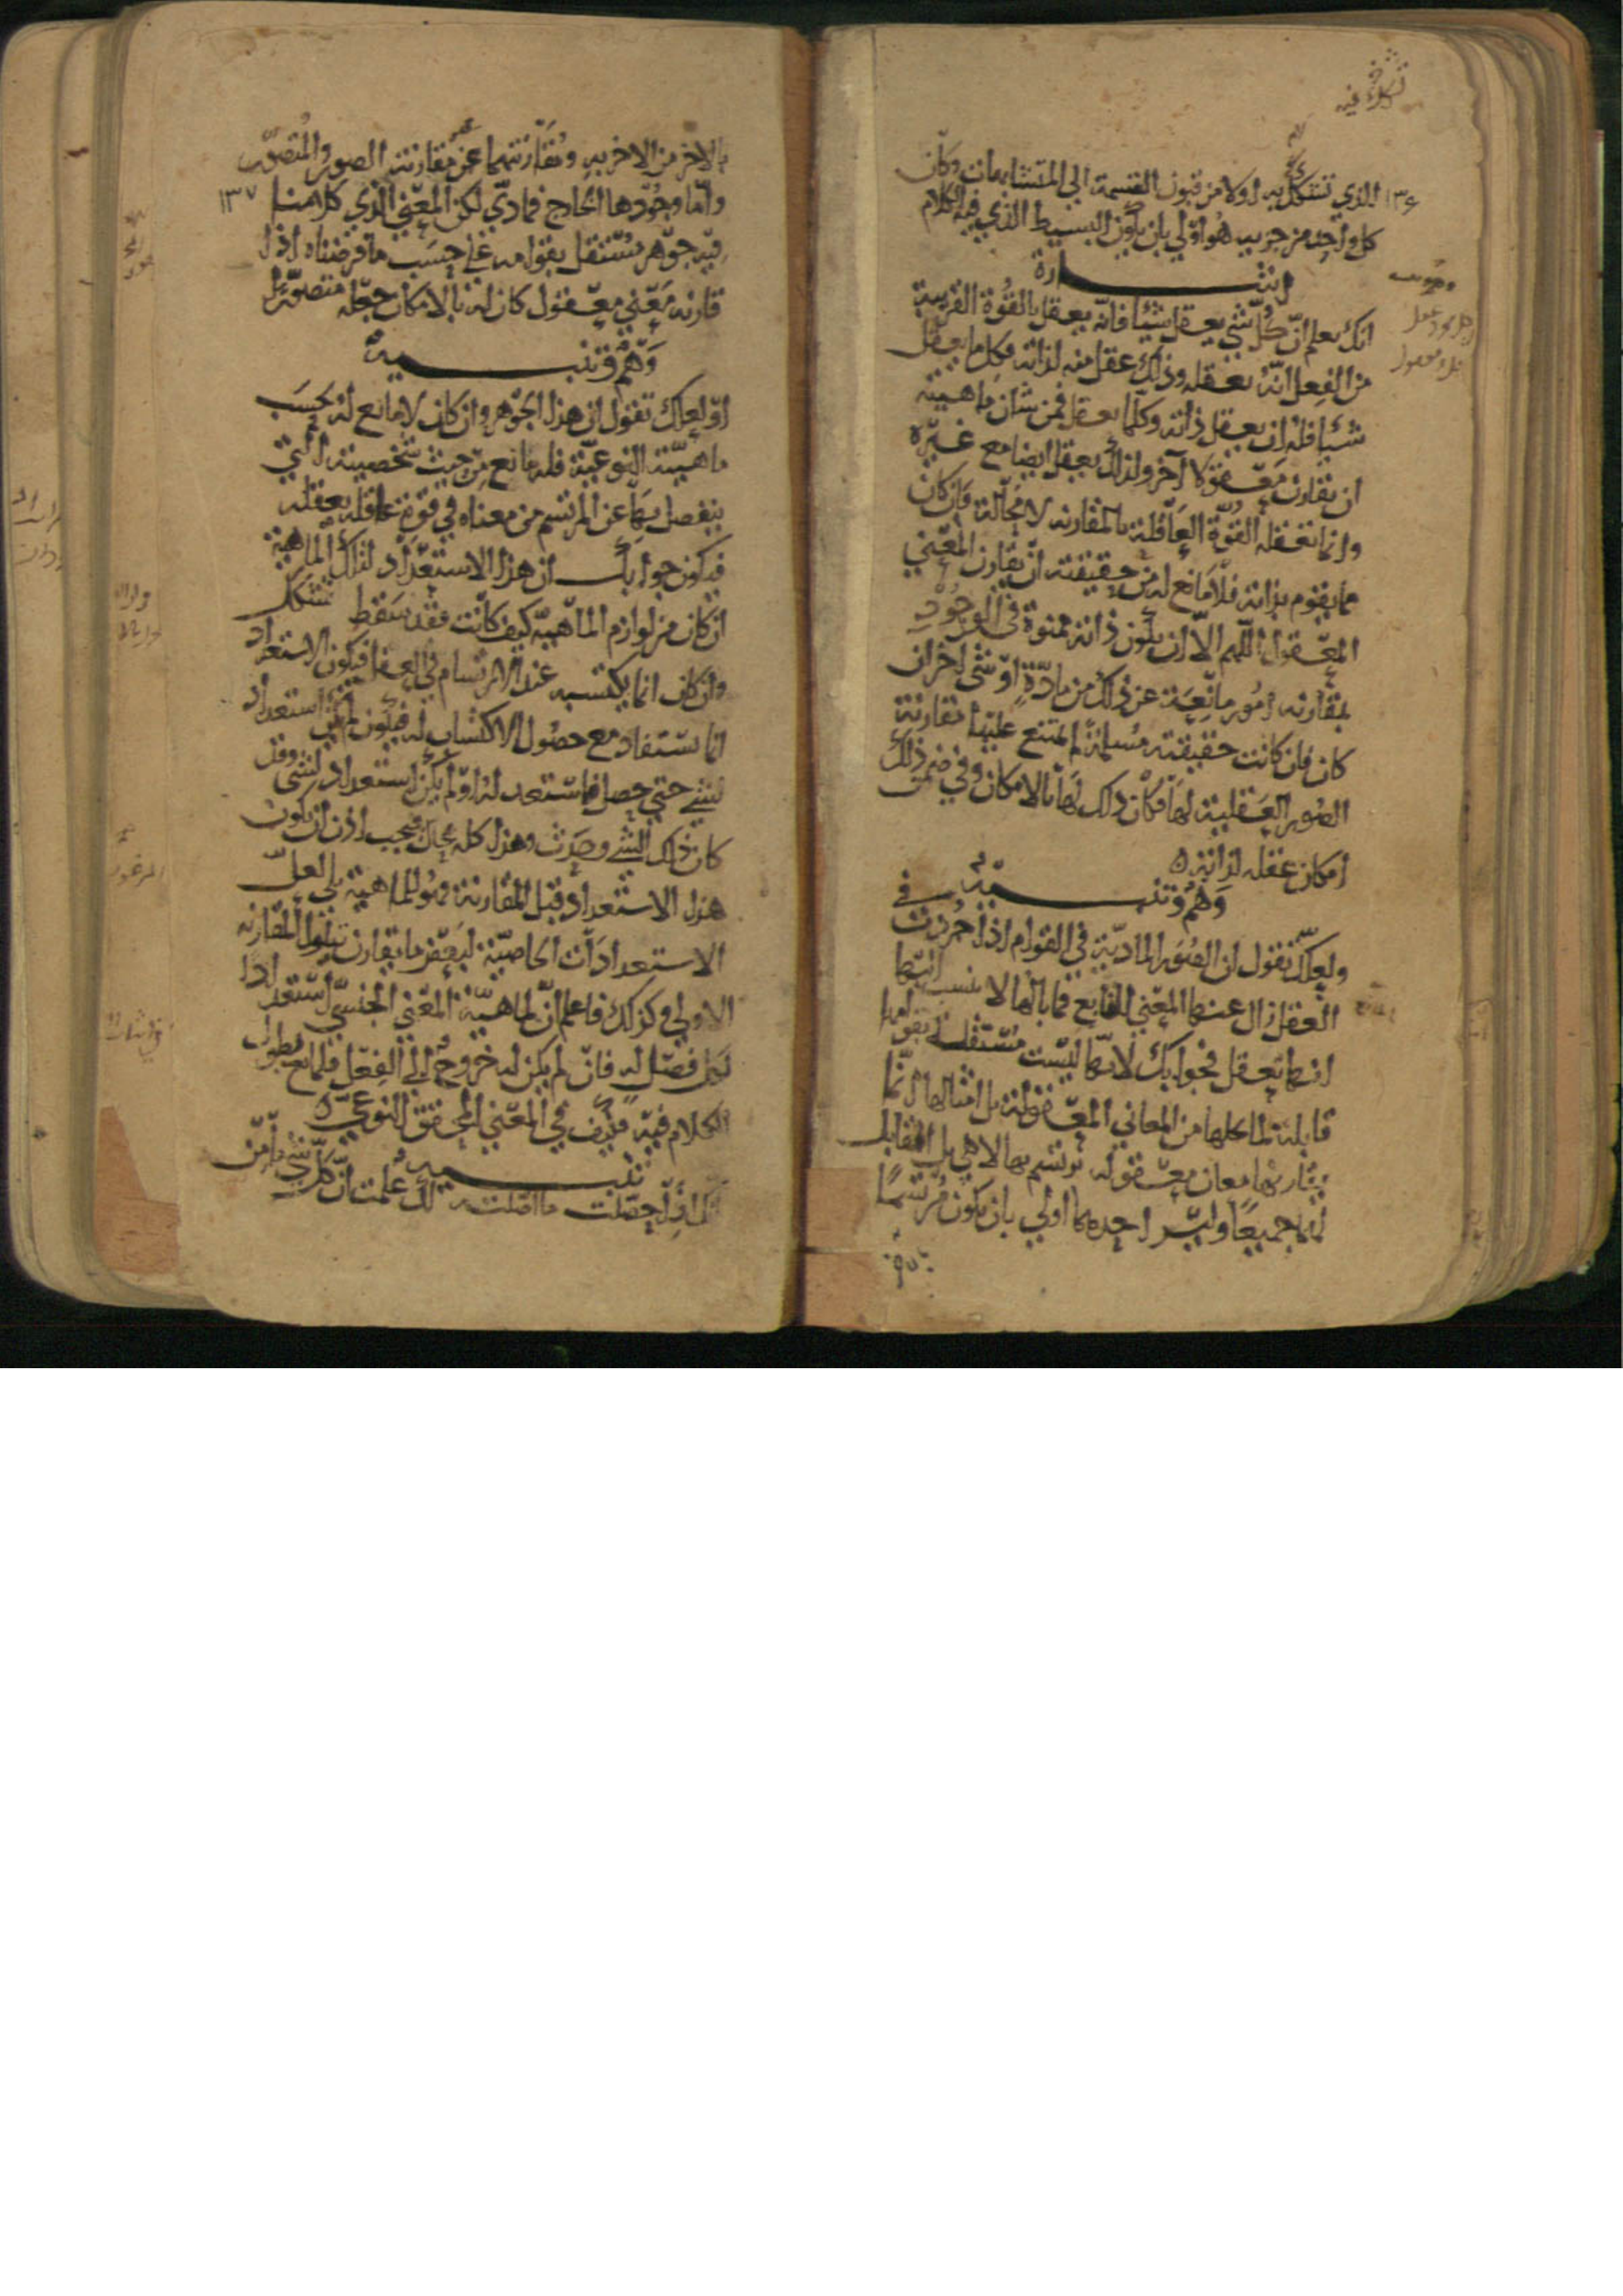 تشكك فيه
١٣۶ الذي تتشكك به اولا من قبول القسمة الى المتشابهات وكان
كل واحد من جزييه هو اولى بان يكون البسيط الذي فيه الكلام
اشارة
انك تعلم انّ كُلّ شي يعقل شيئا فانه يعقل بالقُوة القريبة
من الفعل انّهُ يعقله وذلك عقل منه لذاته فكل ما يعقل
شيئا فله ان يعقل ذاته وكلما يعقل فمن شان ماهيته
ان تقارن معقولا آخر ولذلك يعقل ايضا مع غيره
وانما تعقله القوّة العاقلة بالمقارنه لا محالة وان كان
مما يقوم بذاته فلا مانع له من حقيقته ان يقارن المعنى
المعقول اللهم الا ان يكون ذاته ممنوة في الوجود
بمقارنه امور مانعة عن ذلك من مادّةٍ او شي اخر ان
كان فان كانت حقيقته مُسلمةً لم تمتنع عليها مقارنة
الصُور العقلية لها فكان ذلك لها بالامكان وفي ضمن ذلك
امكان عقله لذاته ه
وَهْم وتنبيه
ولعلك تقول ان الصُوَر الماديّة في القوام اذا جُرّدت في
العقل زال عنها المعنى المانع فما بالها لا ينسب اليها
انها تعقل فجوابك لانها ليست مستقلة بقوامها
قابلة لما يحلها من المعاني المعقولة بل امثالها انّما
يقارنها معان معقوله ترتسم بها لا هي بل القابل
لهما جميعًا وليس احدهما اولى بان يكون مُرتسمًا
بالاخر من الاخر به ومُقارنتهما غير مقارنة الصور والمُتصوّر
١٣٧ وامّا وجُودها الخارج فماديّ لكن المعنى الذي كلامنا
فيه جوهر مستقل بقوامه على حسب ما فرضناه اذا
قارنه مَعنى معقول كان له بالامكان جعله متصوّرا
وَهْم وتنبيه
او لعلك تقول ان هذا الجوهر وان كان لا مانع له بحسب
ماهيّته النوعيّة فله مانع من حيث شخصيته التي
ينفصل بها عن المرتسم من معناه في قوة عاقله يعقله
فيكون جوابك ان هذا الاستعداد لتلك الماهية
ان كان من لوازم الماهيّه كيف كانت فقد سقط تشكك
وان كان انما يكتسبه عند الارتسام في العقل فيكون الاستعداد
انما يستفاد مع حصُول الاكتساب له فيكون لم يكن استعداد
لشي حتى حصل فاستعد له او لم يكن استعداد لشي وقد
كان ذلك الشي وحدث وهذا كله محال فيجب اذن ان يكون
هذا الاستعداد قبل المقارنة فهو للماهية بلى لعل
الاستعدادات الخاصيّة لبعض ما يقارن تتلو المقارنه
الاولى وكذلك فاعلم انّ لماهيّة المعنى الجنسيّ استعدادا
لكل فصل له فان لم يكن له خروج الى الفعل فلمانع يطول
الكلام فيه فكيف في المعنى المحقق النوعي ه
تنبيه
انك اذا حصّلت ما اصّلته لك علمت انّ كلّ شي ما من